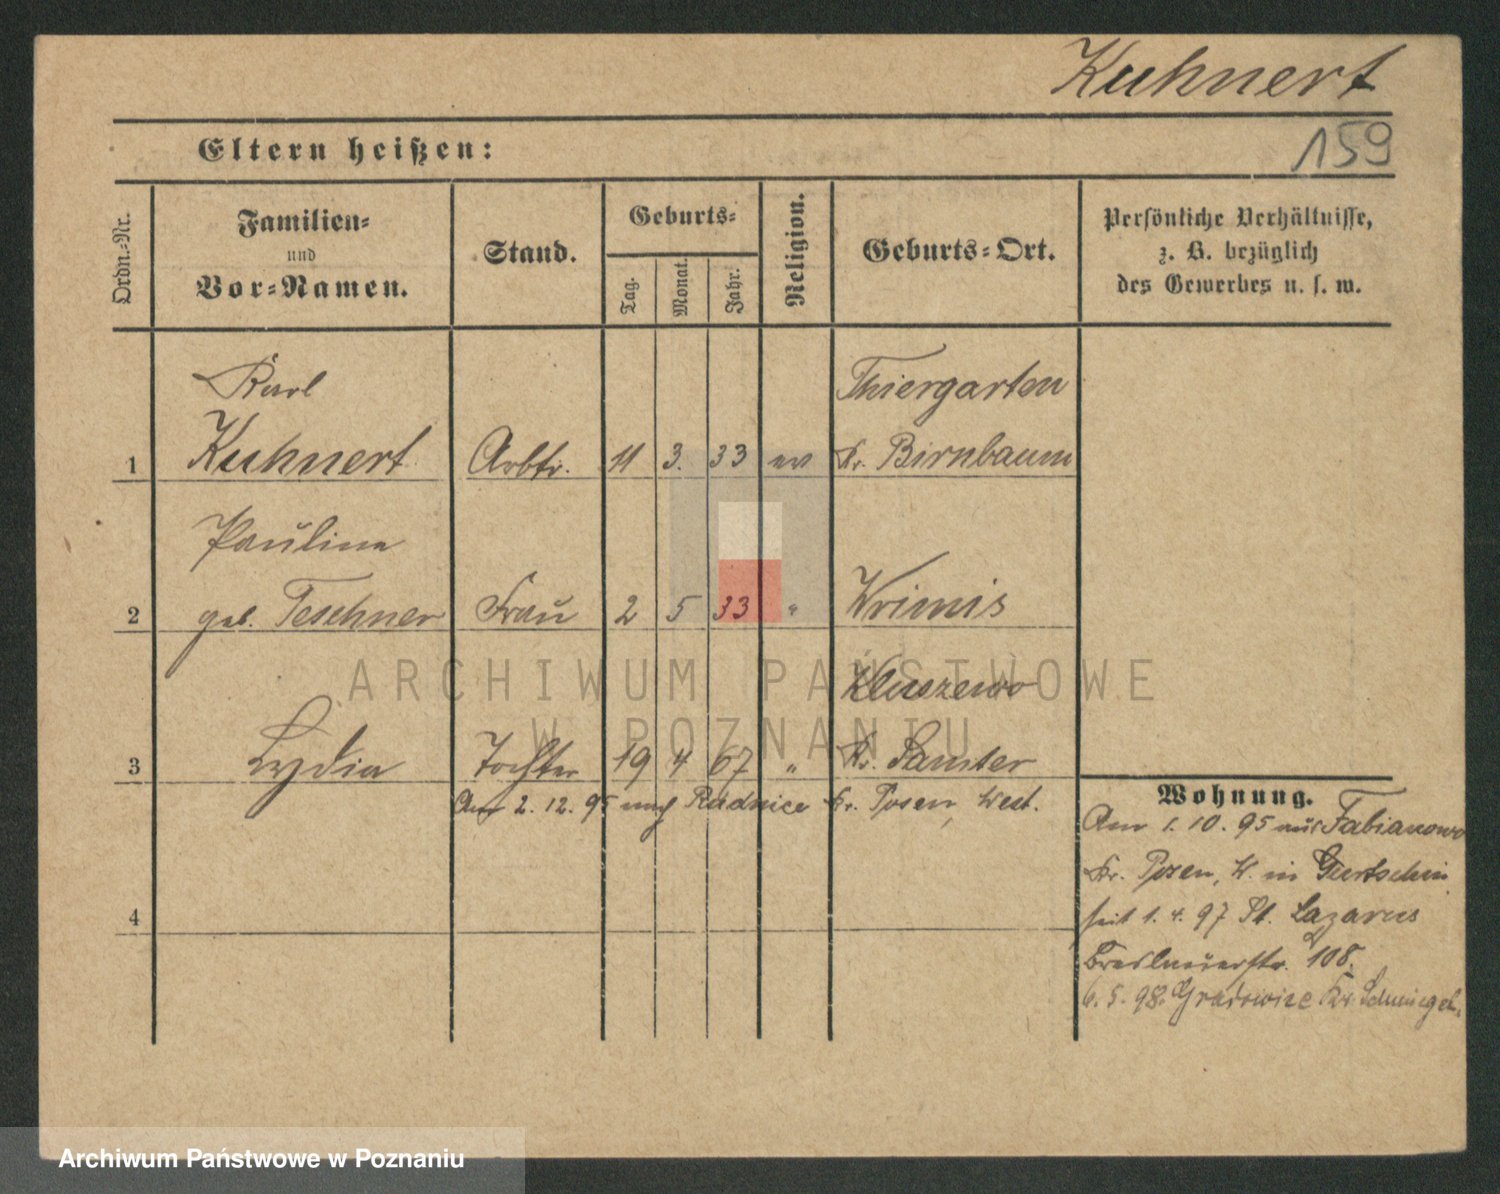 Kuhnert
159
Eltern heißen:
Ordn.-Nr.
Familien-
und
Vor-Namen.
Stand.
Geburts-
Tag.
Monat.
Jahr.
Religion.
Geburts-Ort.
Persönliche Verhältnisse,
z. B. bezüglich
des Gewerbes u. s. w.
Karl
Thiergarten
1 Kuhnert Arbtr. 11 3. 33 ev Kr. Birnbaum
Pauline
2 geb. Teschner Frau 2 5 33 " Wrimis
Kluszewo
3 Lydia Tochter 19 4 67 " Kr. Samter
Am 2. 12. 95 nach Rudnice Kr. Posen, West.
4
Wohnung.
Am 1. 10. 95 aus Fabianowo
Kr. Posen, W. in Gurtschin
seit 1. 4. 97 St. Lazarus
Breslauerstr. 108.
6. 5. 98. Gradowice Kr. Schmiegel.
ARCHIWUM PAŃSTWOWE
W POZNANIU
Archiwum Państwowe w Poznaniu